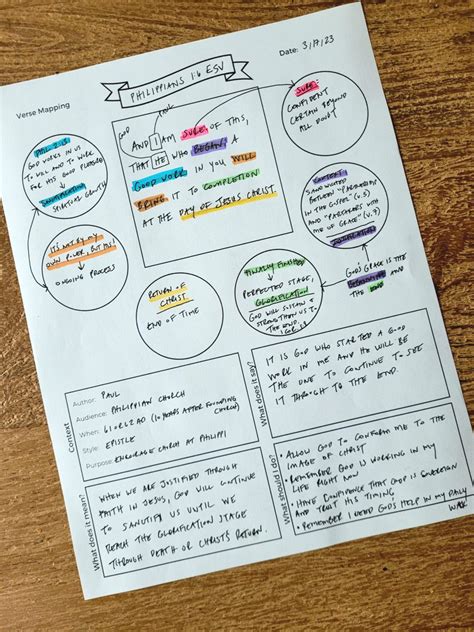 Date: 3/17/23
PHILIPPIANS 1:6 ESV
Verse Mapping
GOD
PAUL
AND I AM SURE OF THIS,
THAT HE WHO BEGAN A
GOOD WORK IN YOU WILL
BRING IT TO COMPLETION
AT THE DAY OF JESUS CHRIST.
SURE:
CONFIDENT
CERTAIN BEYOND
ALL DOUBT
PHIL 2:13
GOD WORKS IN US
TO WILL AND TO WORK
FOR HIS GOOD PLEASURE
SANCTIFICATION
SPIRITUAL GROWTH
IT'S NOT BY MY
OWN POWER, BUT HIS!
ONGOING PROCESS
RETURN OF
CHRIST
END OF TIME
FINALLY FINISHED
PERFECTED STAGE,
GLORIFICATION
GOD WILL SUSTAIN &
STRENGTHEN US TO
THE END.
1 COR 1:8
CONTEXT:
SANDWICHED
BETWEEN "PARTNERSHIP
IN THE GOSPEL" (V.5)
AND "PARTAKERS WITH
ME OF GRACE" (V.7)
GOD'S GRACE IS THE
BEGINNING AND
THE END
Context
Author: PAUL
Audience: PHILIPPIAN CHURCH
When: 61 OR 62 AD (10 YEARS AFTER FOUNDING
CHURCH)
Style: EPISTLE
Purpose: ENCOURAGE CHURCH AT PHILIPPI
What does it say?
IT IS GOD WHO STARTED A GOOD
WORK IN ME AND HE WILL BE
THE ONE TO CONTINUE TO SEE
IT THROUGH TO THE END.
What does it mean?
WHEN WE ARE JUSTIFIED THROUGH
FAITH IN JESUS, GOD WILL CONTINUE
TO SANCTIFY US UNTIL WE
REACH THE GLORIFICATION STAGE
THROUGH DEATH OR CHRIST'S RETURN.
What should I do?
• ALLOW GOD TO CONFORM ME TO THE
IMAGE OF CHRIST
• REMEMBER GOD IS WORKING IN MY
LIFE RIGHT NOW
• HAVE CONFIDENCE THAT GOD IS SOVEREIGN
AND TRUST HIS TIMING
• REMEMBER I NEED GOD'S HELP IN MY DAILY
WALK